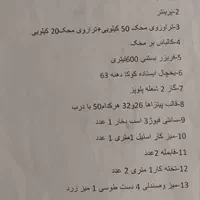 2-پرینتر
3-تراوزوی محک 50 کیلویی+ترازوی محک20 کیلویی
4-کالباس بر محک
5-فریزر بستنی 600لیتری
6-یخچال ایستاده کوکا دهنه 63
7-گاز 2 شعله پلوپز
8-قالب پیتزاها 26و32 هرکدام50 با درب
9-سانتی فیوژ3 اسب بخار 1 عدد
10-میز کار استیل 1متری 1 عدد
11-قابلمه 2عدد
12-تخته کار1 متری 2 عدد
13-میز وصندلی 4 دست طوسی 1 میز زرد